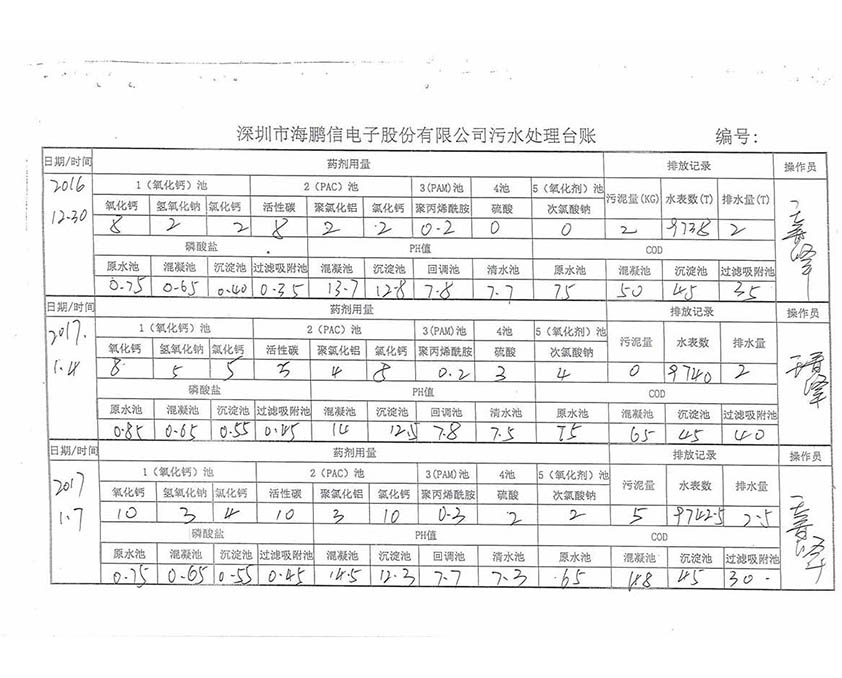 深圳市海鹏信电子股份有限公司污水处理台账 编号:
日期/时间 药剂用量 排放记录 操作员
2016 1（氧化钙）池 2（PAC）池 3(PAM)池 4池 5（氧化剂）池 污泥量(KG) 水表数(T) 排水量(T)
12.30 氧化钙 氢氧化钠 氯化钙 活性碳 聚氯化铝 氯化钙 聚丙烯酰胺 硫酸 次氯酸钠
8 2 2 8 2 2 0.2 0 0 2 9738 2
磷酸盐 PH值 COD
原水池 混凝池 沉淀池 过滤吸附池 混凝池 沉淀池 回调池 清水池 原水池 混凝池 沉淀池 过滤吸附池
0.75 0.65 0.40 0.35 13.7 12.8 7.8 7.7 75 50 45 35
日期/时间 药剂用量 排放记录 操作员
2017. 1（氧化钙）池 2（PAC）池 3(PAM)池 4池 5（氧化剂）池 污泥量 水表数 排水量
1.4 氧化钙 氢氧化钠 氯化钙 活性碳 聚氯化铝 氯化钙 聚丙烯酰胺 硫酸 次氯酸钠
8 5 5 5 4 8 0.2 3 4 0 9740 2
磷酸盐 PH值 COD
原水池 混凝池 沉淀池 过滤吸附池 混凝池 沉淀池 回调池 清水池 原水池 混凝池 沉淀池 过滤吸附池
0.85 0.65 0.55 0.45 14 12.5 7.8 7.5 75 65 45 40
日期/时间 药剂用量 排放记录 操作员
2017 1（氧化钙）池 2（PAC）池 3(PAM)池 4池 5（氧化剂）池 污泥量 水表数 排水量
1.7 氧化钙 氢氧化钠 氯化钙 活性碳 聚氯化铝 氯化钙 聚丙烯酰胺 硫酸 次氯酸钠
10 3 4 10 3 10 0.3 2 2 5 9742.5 2.5
磷酸盐 PH值 COD
原水池 混凝池 沉淀池 过滤吸附池 混凝池 沉淀池 回调池 清水池 原水池 混凝池 沉淀池 过滤吸附池
0.75 0.65 0.55 0.45 14.5 12.3 7.7 7.3 65 48 45 30